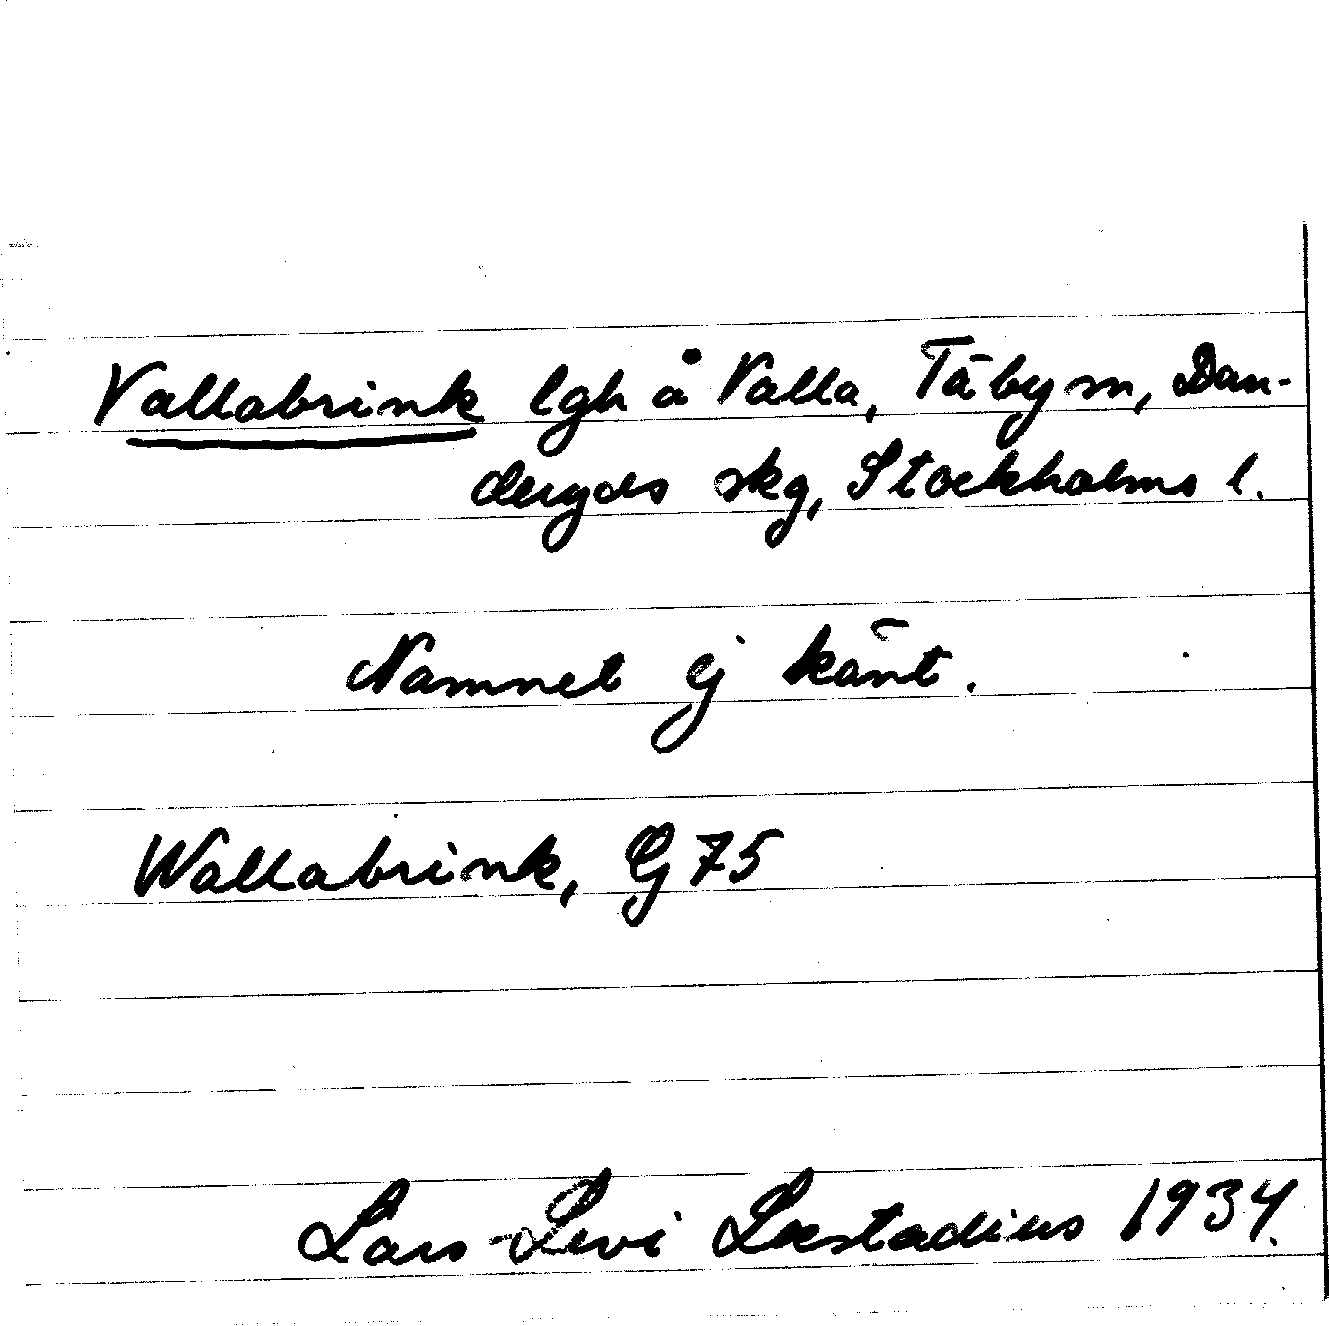 Vallabrink lgh å Valla, Täby sn, Dan-
deryds skg, Stockholms l.
Namnet ej känt.
Wallabrink, Ej 75
Lars-Levi Læstadius 1934.